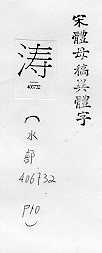 宋體母稿異體字
涛
406732
(水部
406732
P10)